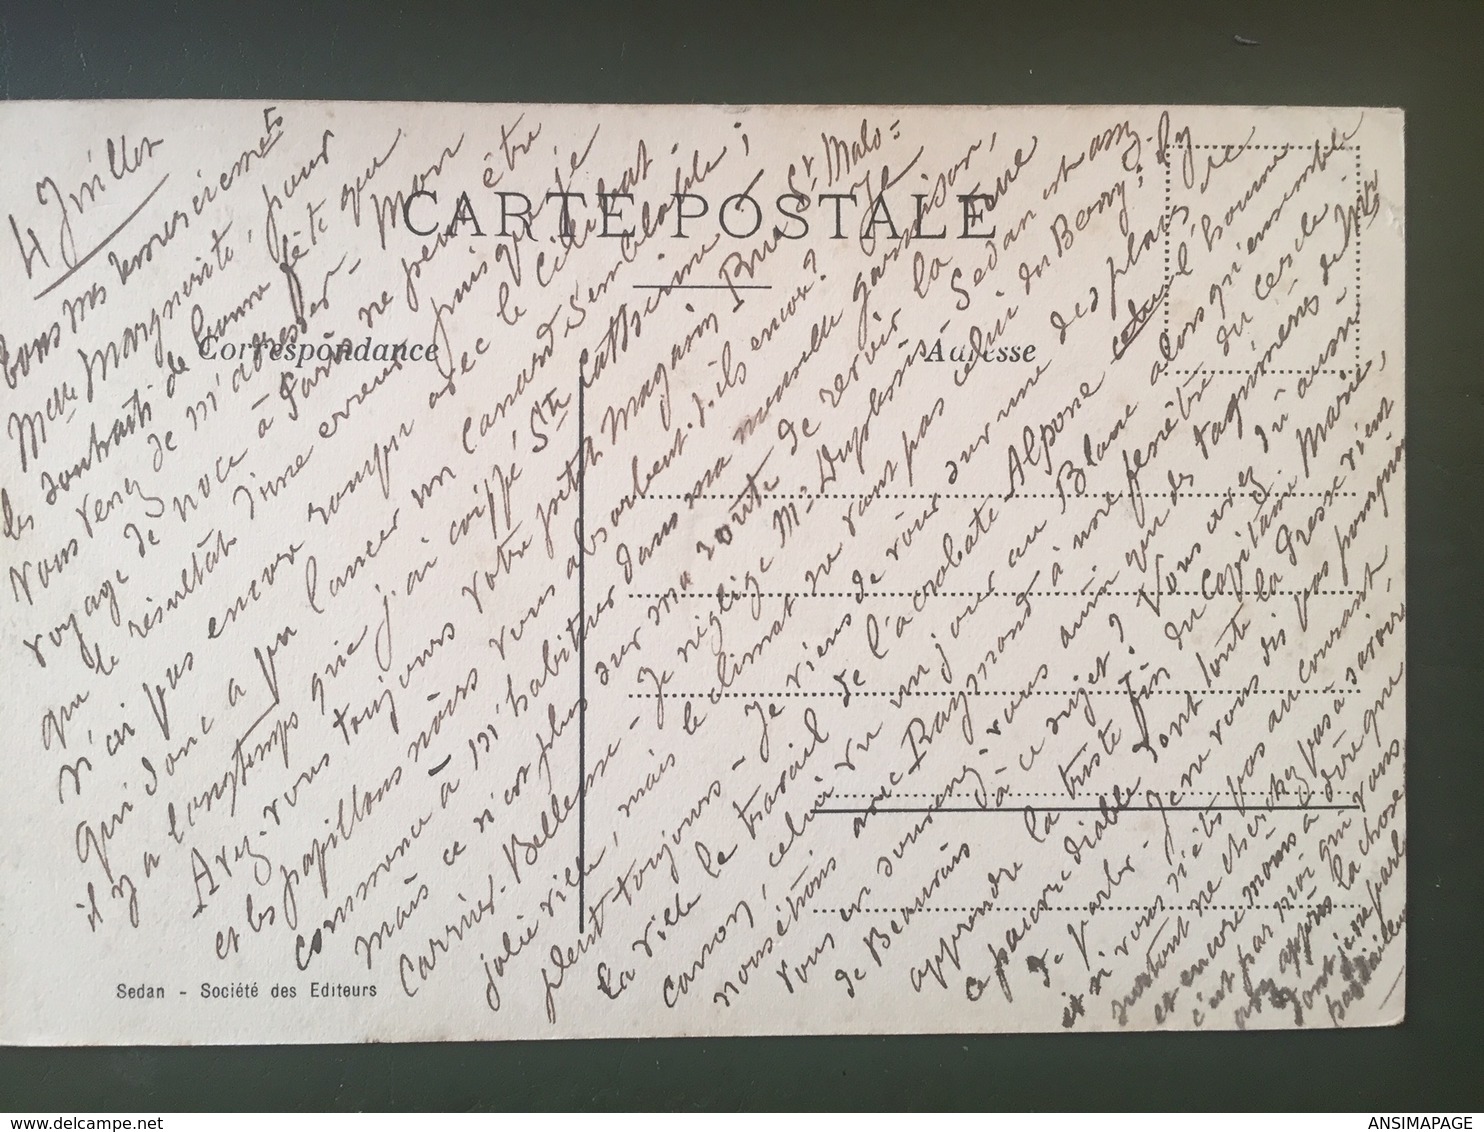 4 Juillet
Tous mes remerciements
Melle Marguerite, pour
les souhaits de bonne fête que
vous venez de m'adresser - Mon
voyage de noce à Paris ne peut être
que le résultat d'une erreur puisque je
n'ai pas encore rompu avec le célibat -
qui donc a pu lancer un canard semblable ;
il y a longtemps que j'ai coiffé Ste Catherine
Avez-vous toujours votre petit magasin Rue St Malo =
et les papillons noirs vous absorbent-ils encore? Je
commence à m'habituer dans ma nouvelle garnison,
mais ce n'est plus sur ma route de revoir la Rue
Carrier-Belleuse - Je néglige Me Duplessis - Sedan est assez
jolie ville, mais le climat ne vaut pas celui du Berry ; il y
pleut toujours - Je viens de voir sur une des places de
la ville le travail de l'acrobate Alpone l'homme
canon, celui vu un jour au Blanc alors qu'ensemble
nous étions avec Raymond à une fenêtre du cercle -
vous en souvenez-vous ainsi que des taquineries de Mr
de Beauvais à ce sujet? Vous avez dû aussi
apprendre la triste fin du Capitaine Marie,
ce pauvre diable dont toute la Presse vient
de parler - Je ne vous dis pas pourquoi
et si vous n'êtes pas au courant,
surtout ne cherchez pas à savoir,
et encore moins à dire que
c'est par moi que vous
avez appris la chose
dont je ne parle
pas d'ailleurs
CARTE POSTALE
Correspondance
Adresse
Sedan - Société des Editeurs
delcampe.net
ANSIMAPAGE